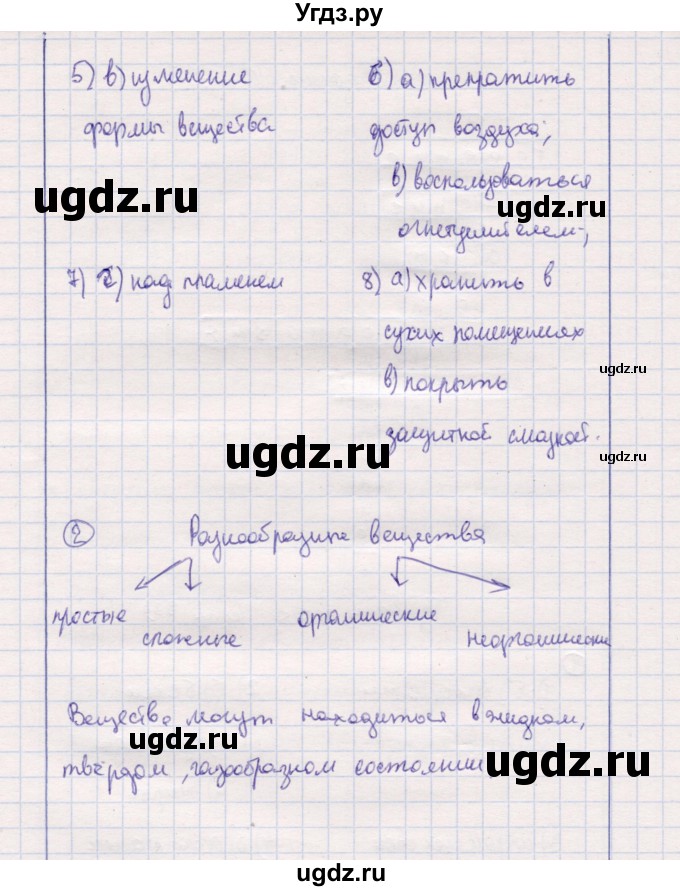 Угдз.ру
5) в) изменение
формы вещества
6) а) прекратить
доступ воздуха;
в) воспользоваться
огнетушителем;
ugdz.ru
ugdz.ru
7) с) над пламенем
8) а) хранить в
сухих помещениях
в) покрыть
защитной смазкой.
ugdz.ru
ugdz.ru
ugdz.ru
2
Разнообразие вещества
простые
сложные
органические
неорганически
Вещества могут находиться в жидком,
твёрдом, газообразном состоянии
ugdz.ru
ugdz.ru
ugdz.ru